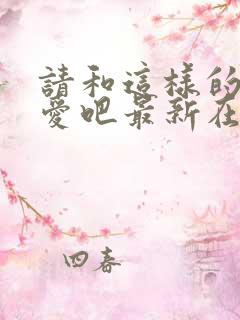 請和這樣的
愛吧最新在
四春